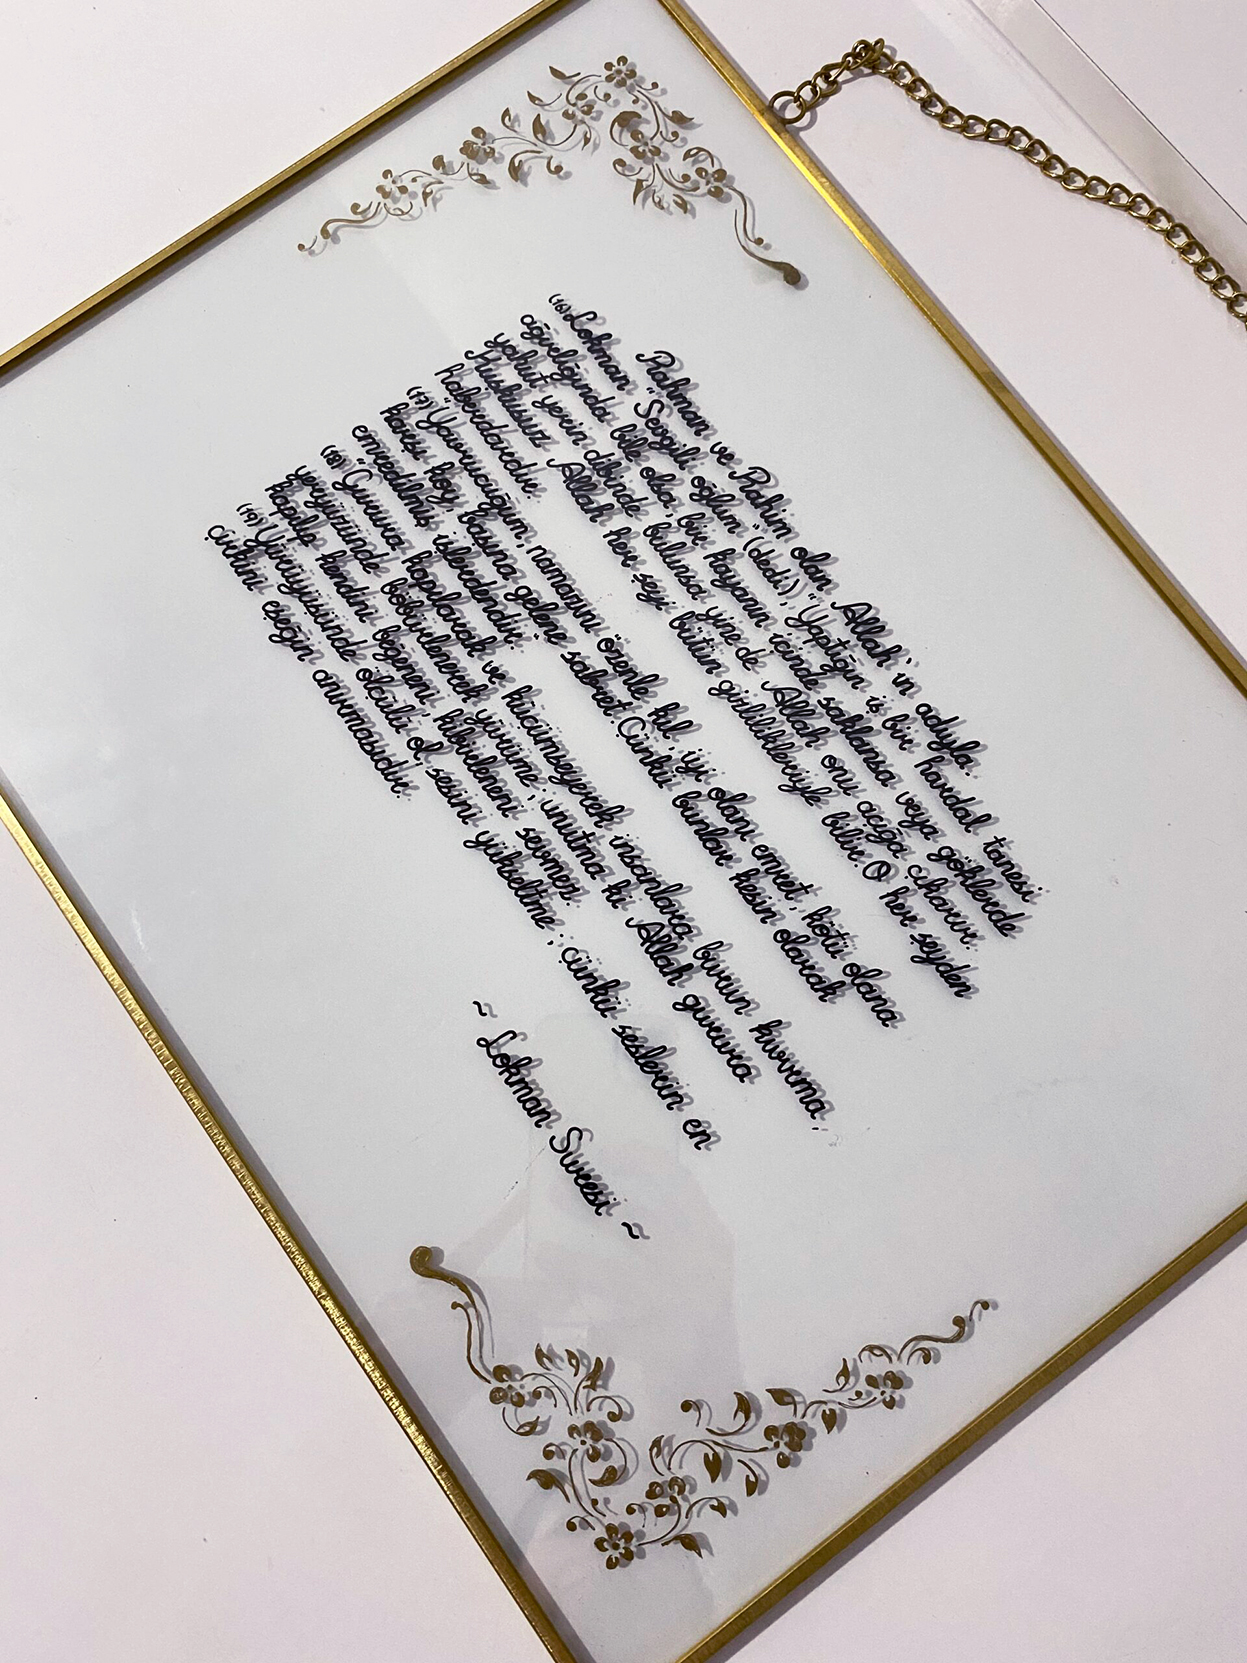 Rahman ve Rahim olan Allah'ın adıyla.
(16) Lokman "Sevgili oğlum" (dedi), "Yaptığın iş bir hardal tanesi
ağırlığında bile olsa, bir kayanın içinde saklansa veya göklerde
yahut yerin dibinde bulunsa yine de Allah onu açığa çıkarır.
Kuşkusuz Allah her şeyi bütün gizlilikleriyle bilir. O her şeyden
haberdardır.
(17) "Yavrucuğum, namazını özenle kıl, iyi olanı emret, kötü olana
karşı koy, başına gelene sabret. Çünkü bunlar kesin olarak
emredilmiş işlerdendir."
(18) "Gurura kapılarak ve küçümseyerek insanlara burun kıvırma,
yeryüzünde böbürlenerek yürüme; unutma ki Allah gurura
kapılıp kendini beğeneni, kibirleneni sevmez.
(19) Yürüyüşünde ölçülü ol, sesini yükseltme; çünkü seslerin en
çirkini eşeğin anırmasıdır.
~ Lokman Suresi ~